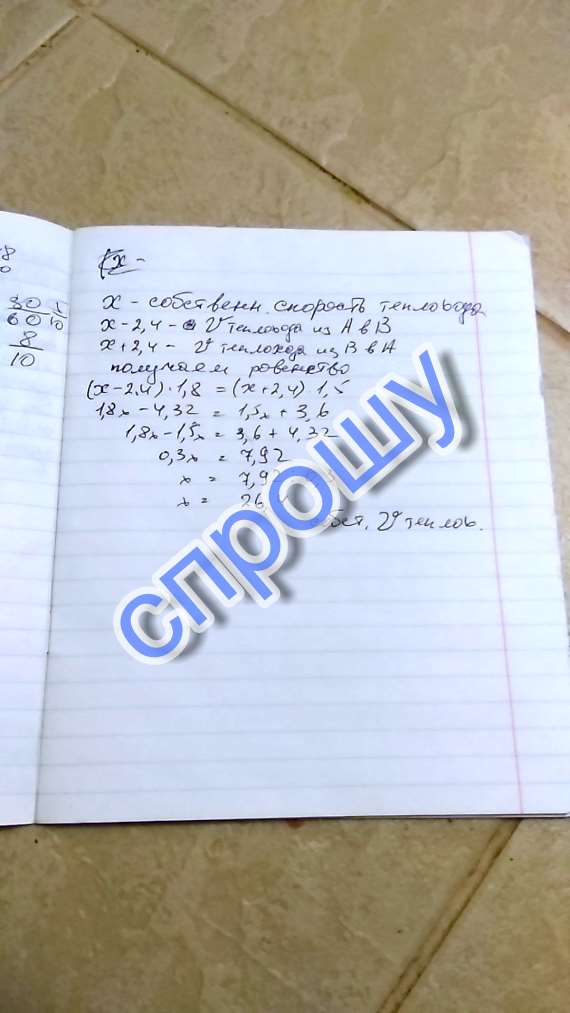 18
0
80 1
60 10
8
10
x -
x - собственн. скорость теплохода
x-2,4 - V теплохода из А в В
x+2,4 - V теплохода из В в А
получаем равенство
(x-2,4)·1,8 = (x+2,4)·1,5
1,8x-4,32 = 1,5x+3,6
1,8x-1,5x = 3,6+4,32
0,3x = 7,92
x = 7,92
x = 26,
V теплов.
спрошу